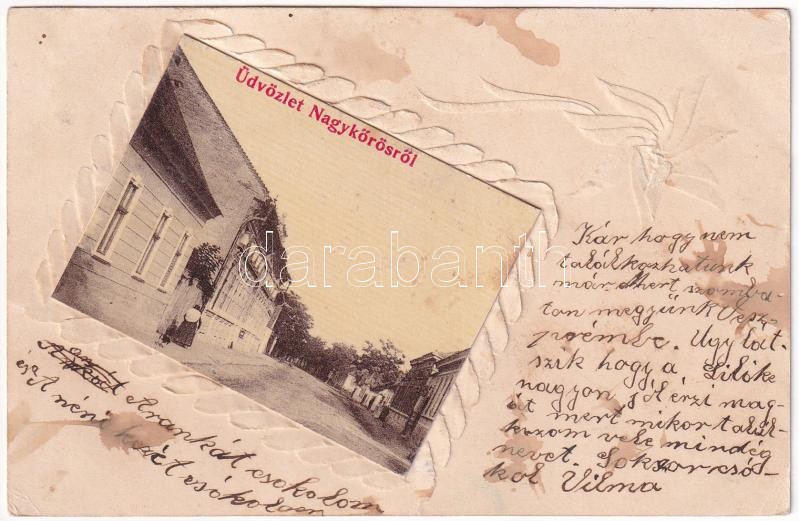 Üdvözlet Nagykőrösről
darabanth
Kár hogy nem
találkozhatunk
már mert szomba-
tan megyünk Vesz-
prémbe. Úgy lát-
szik hogy a Lilike
nagyon jól érzi mag-
át mert mikor talál-
kozom vele mindég
nevet. Sokszor csó-
kol Vilma
Arankát csokolom
és A néni kezét csókolom